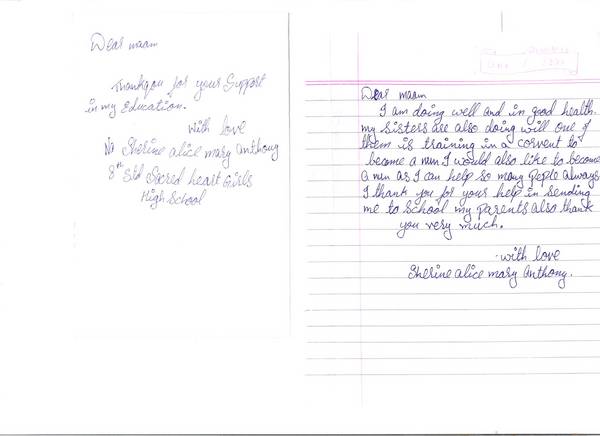 Dear maam
Thankyou for your Support
in my Education.
With love
Sherine alice mary Anthony
8th Std Sacred heart Girls
High School
Dear maam
I am doing well and in good health.
my sisters are also doing will one of
them is training in a convent to
become a nun I would also like to become
a nun as I can help so many peple always
I thank you for your help in sending
me to School my parents also thank
you very much.
with love
Sherine alice mary Anthony.